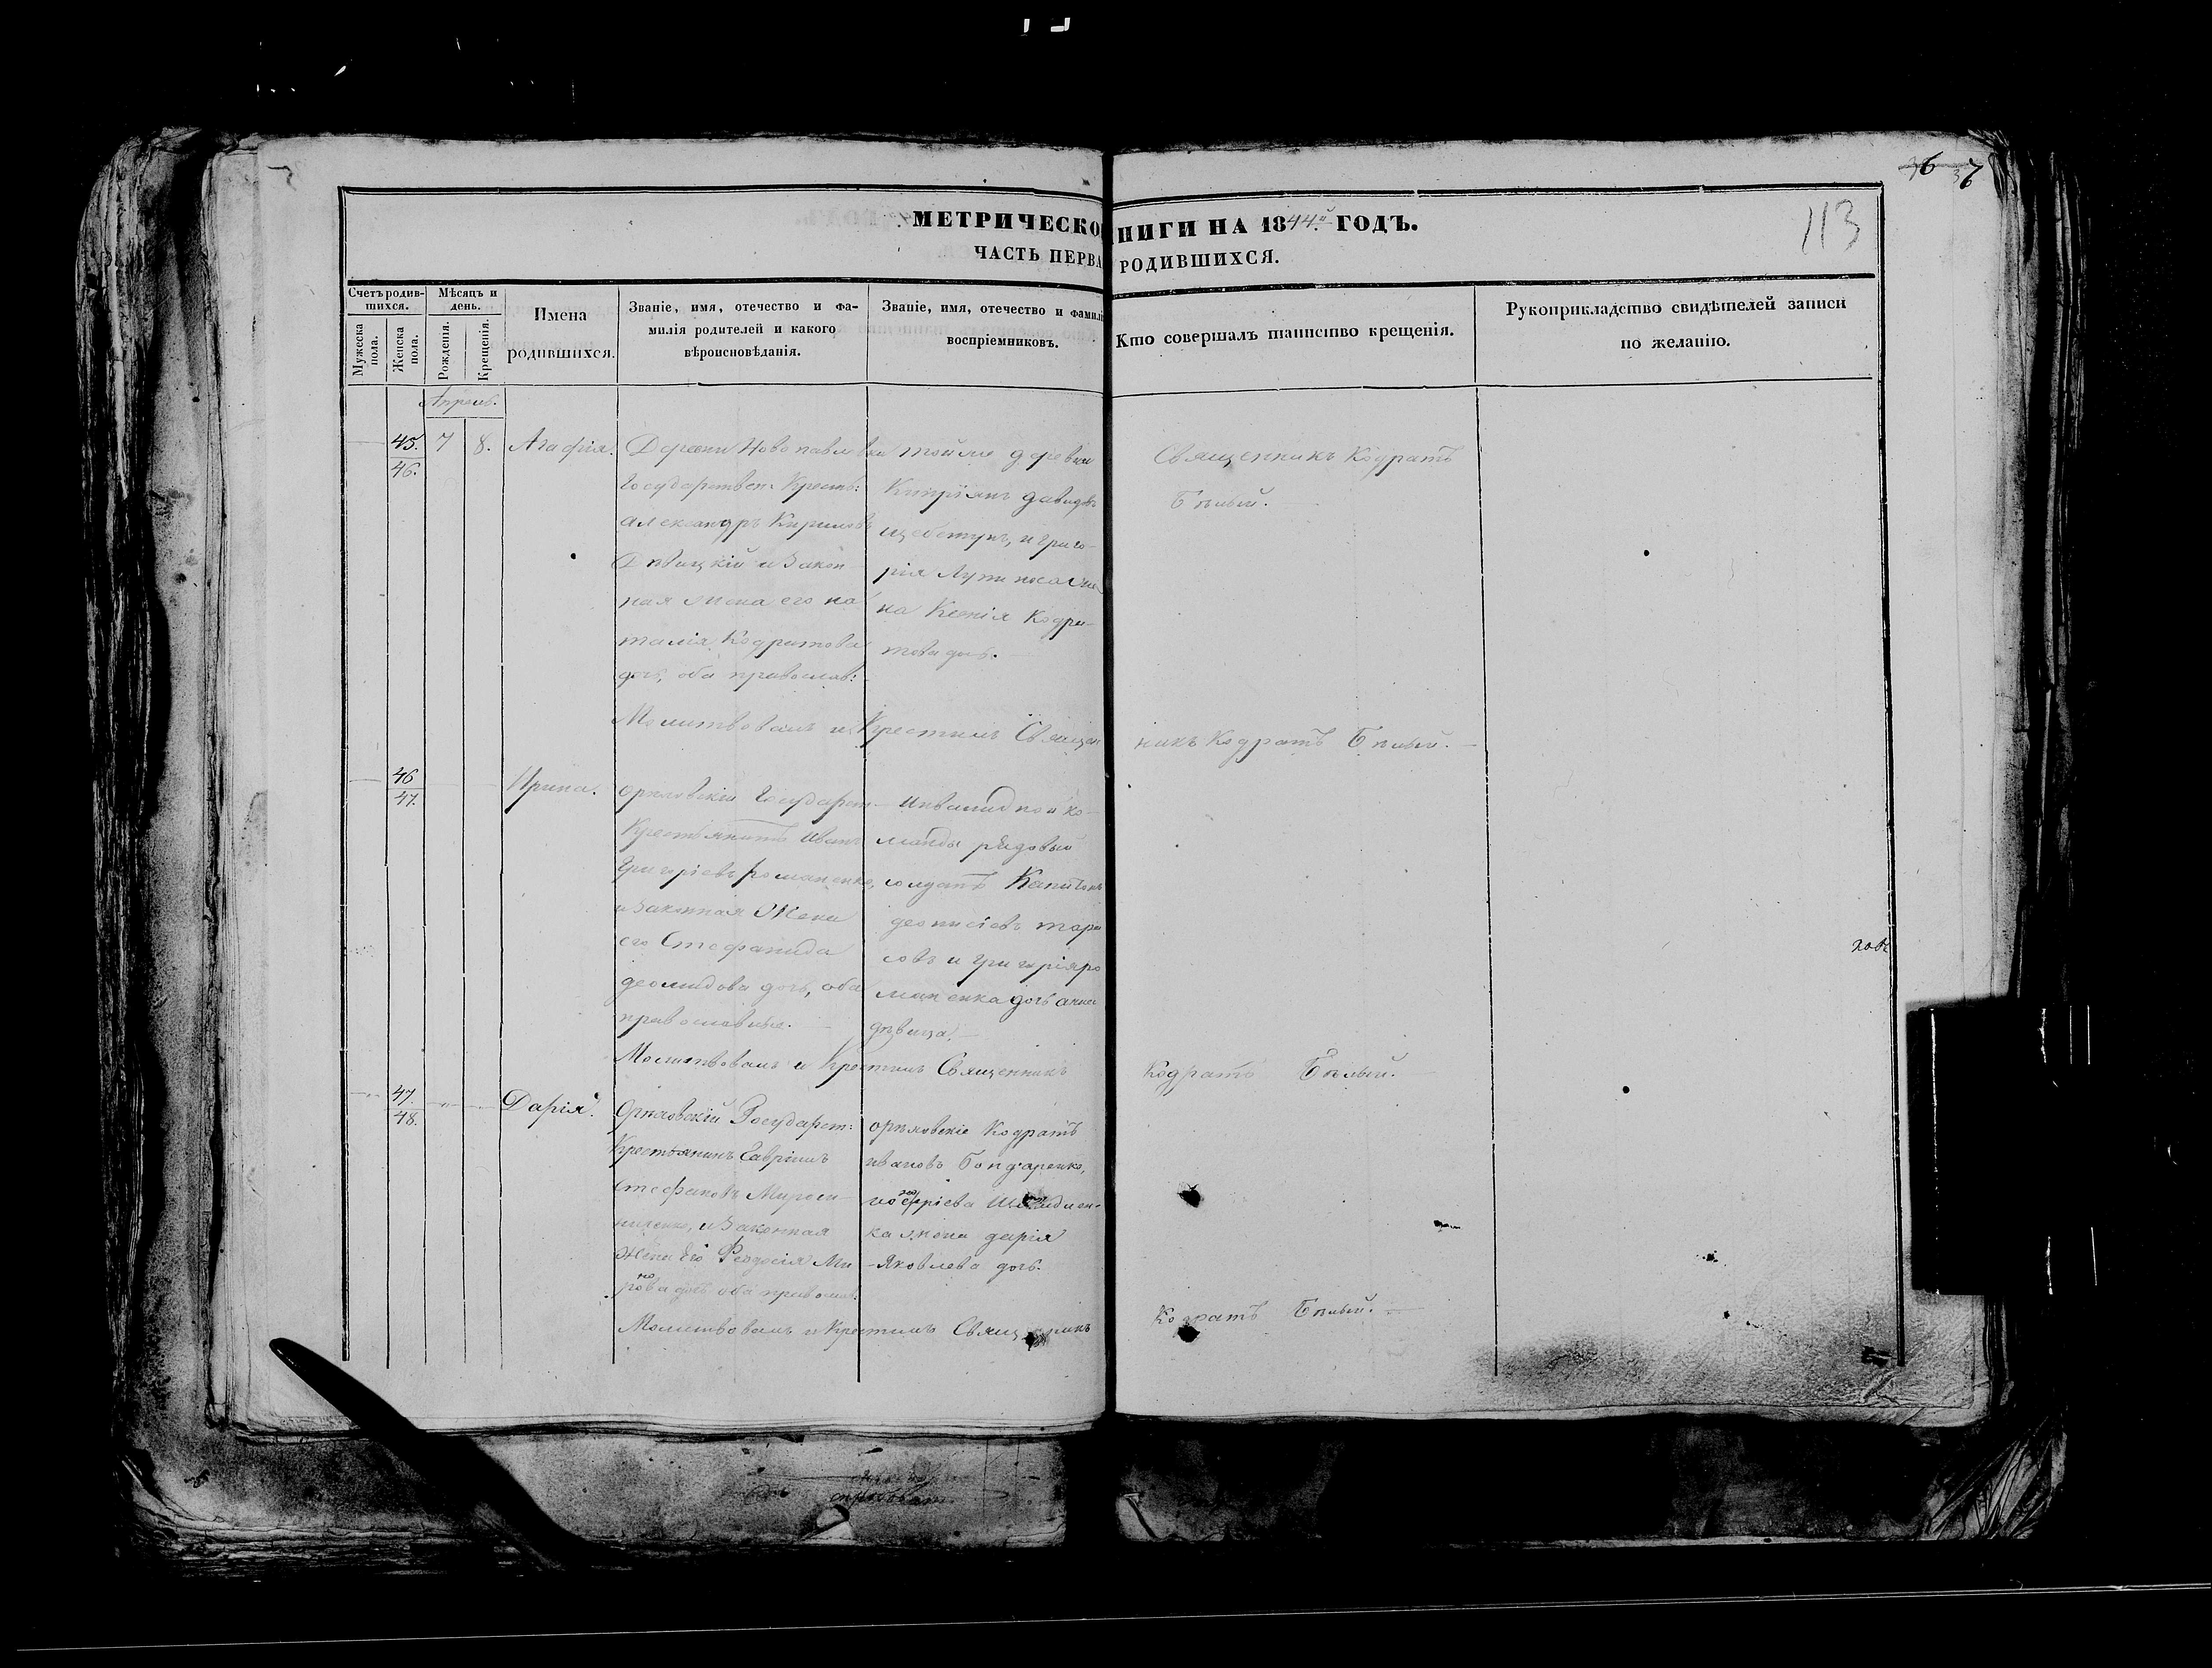 36 37
МЕТРИЧЕСКО НИГИ НА 1844й ГОДЪ.
113
ЧАСТЬ ПЕРВА РОДИВШИХСЯ.
Счетъ родив-
шихся.
Мужеска пола.
Женска пола.
Мѣсяцъ и
день.
Рожденія.
Крещенія.
Имена
родившихся.
Званіе, имя, отечество и фа-
милія родителей и какого
вѣроисповѣданія.
Званіе, имя, отечество и фамилі
воспріемниковъ.
Кто совершалъ таинство крещенія.
Рукоприкладство свидѣтелей записи
по желанію.
Апрель.
45.
46.
7
8.
Агафія.
Деревни Новопавловки
Государствен: Кресть:
Александръ Кириловъ
Дѣвицкій и Закон
ная жена его На
талія Кодратова
дочь, оба православ:
тойже деревни
Кипріянъ давидовъ
щебетунъ, и григо-
рія
на Ксенія Кодра-
това дочь.
Священникъ Кодратъ
Бѣлый.
Молитвовалъ и Крестилъ Священ
никъ Кодратъ Бѣлый.
46
47.
Ирина.
Орѣховскій Государст-
Крестьянинъ Иванъ
Григоріевъ Романенко,
и Законная Жена
его Стефанида
деомидова дочь, оба
православные.
Инвалидной ко-
манды рядовый
солдатъ Капитонъ
деонисіевъ
совъ и Григорія ро
маненка дочь анна
дѣвица.
Молитвовалъ и Крестилъ Священникъ
Кодратъ Бѣлый.
47.
48.
Дарія.
Орѣховскій Государст:
Крестьянинъ Гавріилъ
Стефановъ Мирош-
ниченко, и Законная
Жена Его Феодосія Ми
рова дочь оба православ:
орѣховскіе Кодратъ
ивановъ Бондаренко,
ка жена дарія
Яковлева дочь.
Молитвовалъ и Крестилъ Священникъ
Кодратъ Бѣлый.